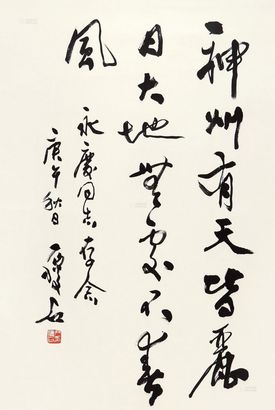 神州有天皆麗
日大地無處不春
風
永慶同志存念
庚午秋日